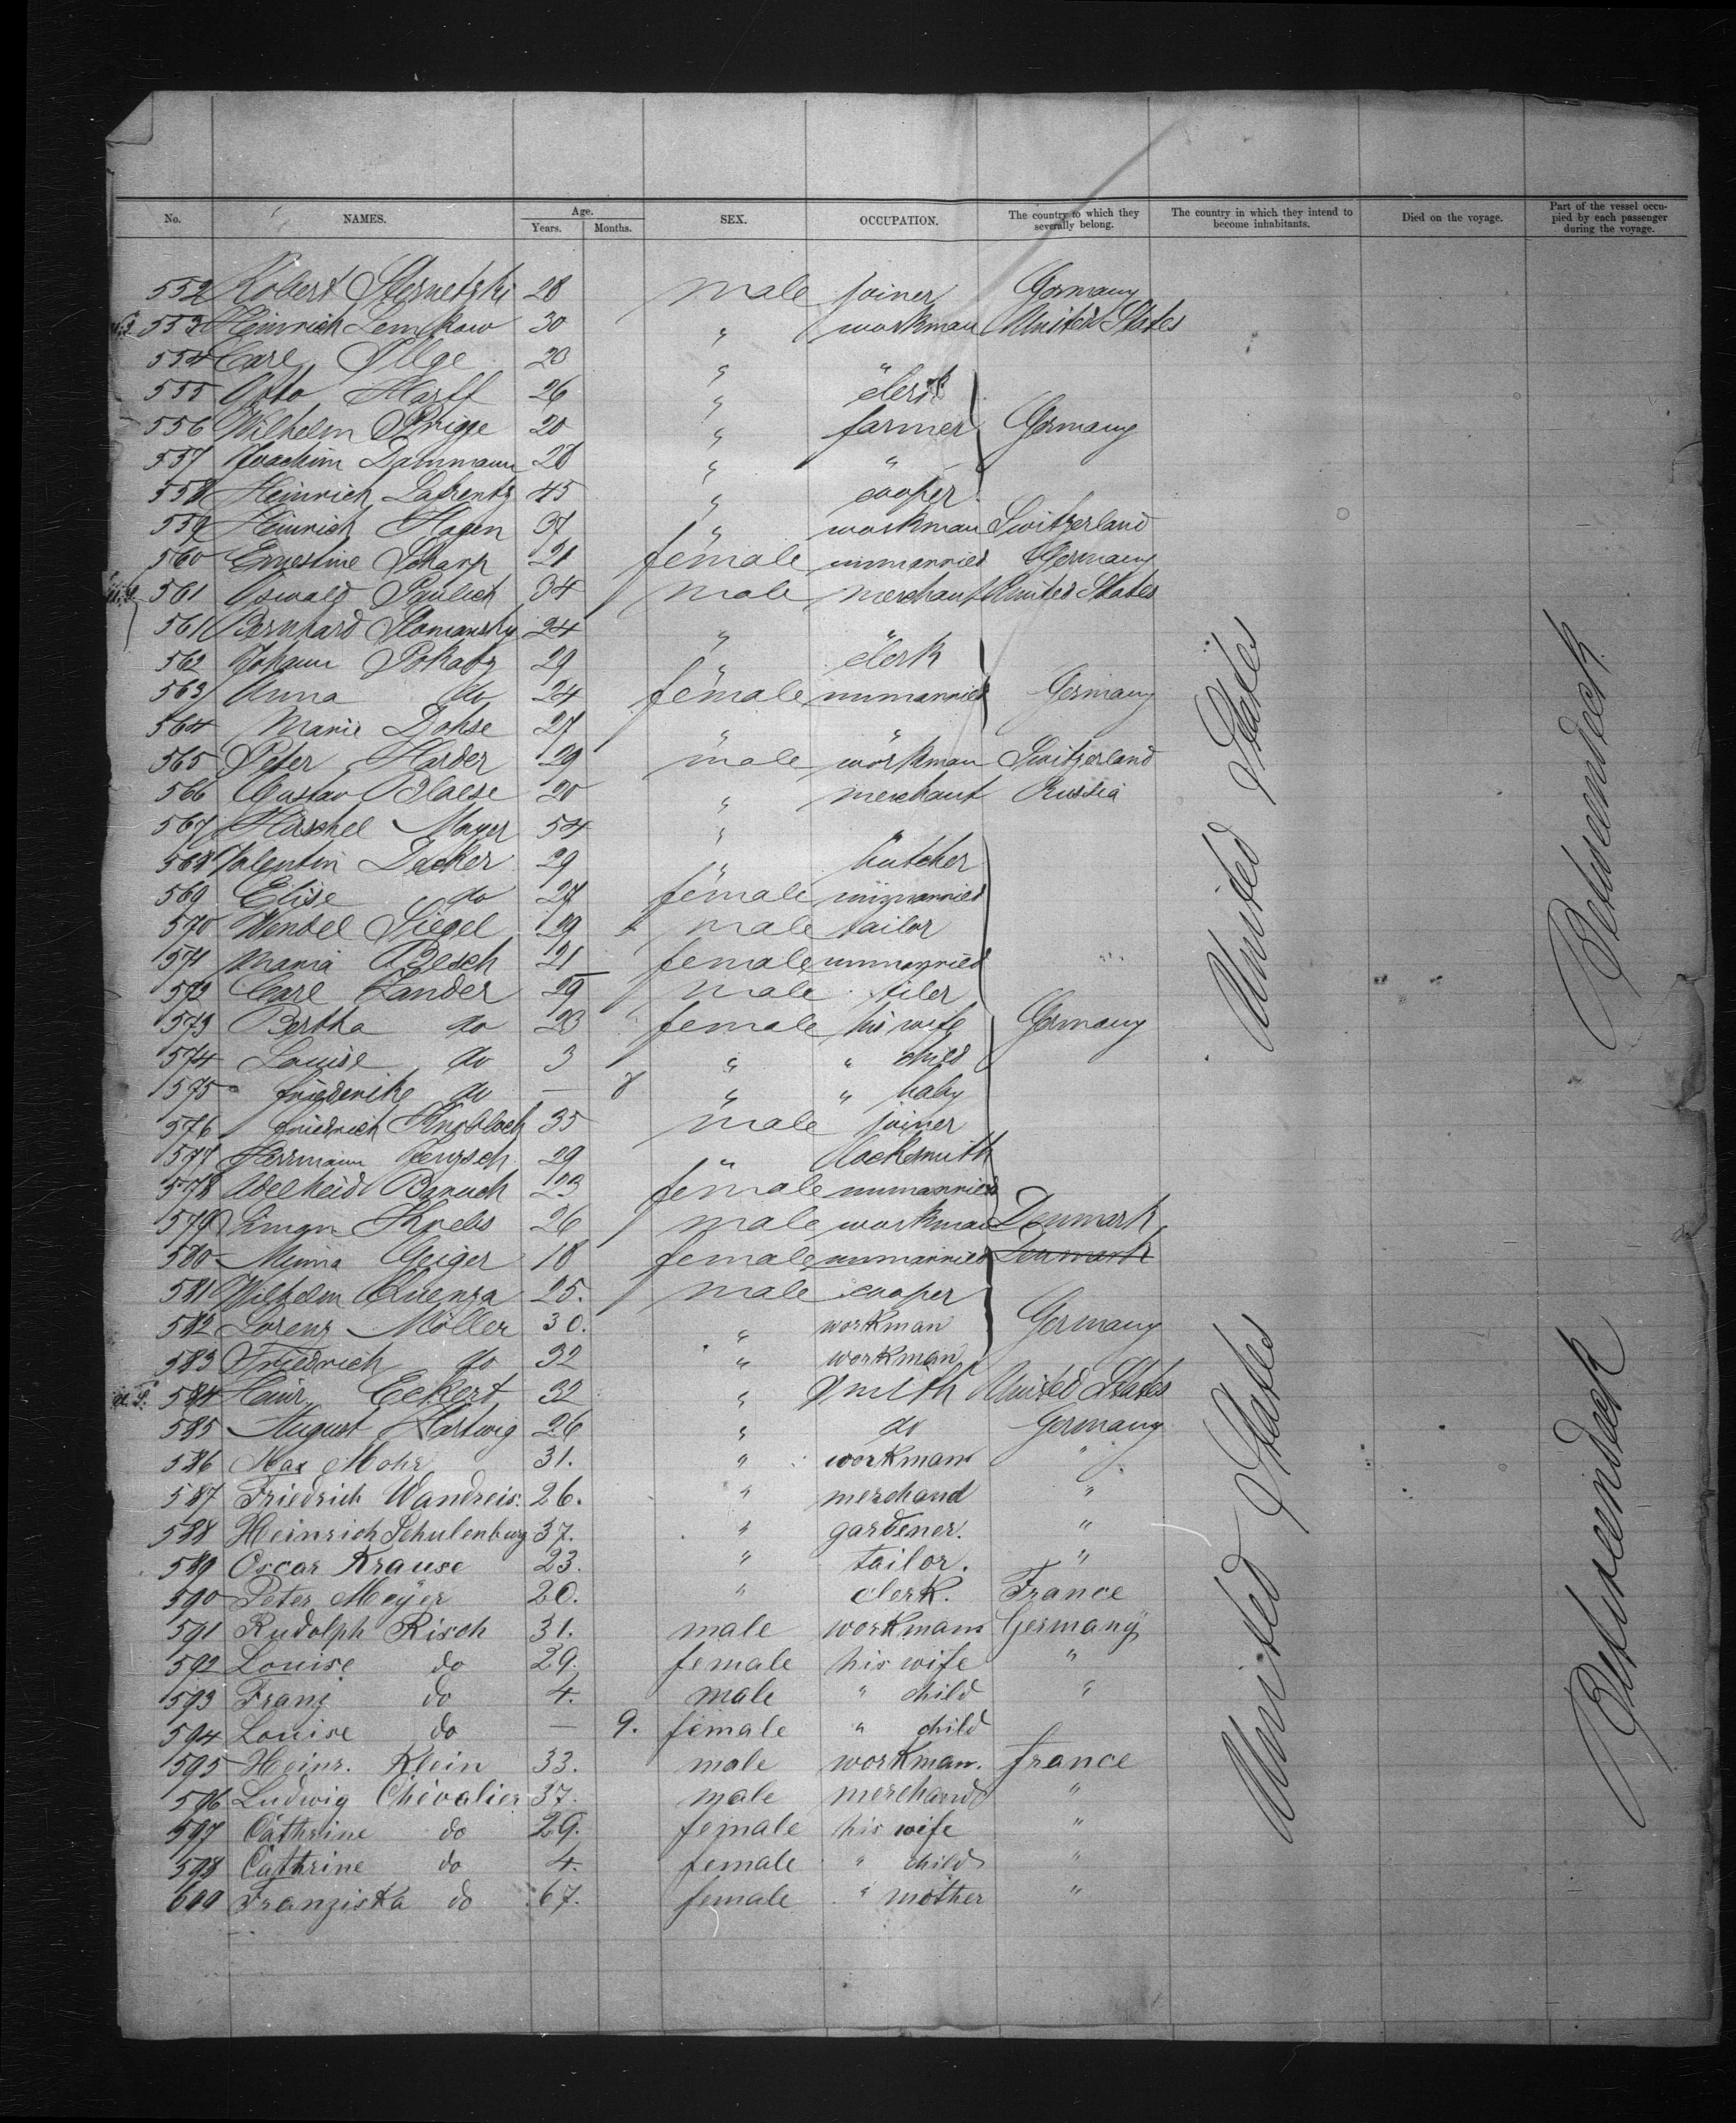 No. NAMES. Age. Years. Months. SEX. OCCUPATION. The country to which they severally belong. The country in which they intend to become inhabitants. Died on the voyage. Part of the vessel occupied by each passenger during the voyage.
552 Robert 28 male joiner Germany
553 Heinrich Lemkow 30 " workman United States
554 Carl Illge 20 " "
555 Otto Harff 26 " clerk
556 Wilhelm 20 " farmer Germany
557 Joachim Dammann 28 " "
558 Heinrich Lafrentz 45 " cooper
559 Heinrich Hagen 37 " workman Switzerland
560 Ernestine Scharp 21 female unmarried Germany
561 Oswald 34 male merchant United States
561 Bernhard 24 " "
562 Johann Pokatz 29 " clerk
563 Anna do 24 female unmarried Germany
564 Marie Dohse 27 " "
565 Peter Harder 29 male workman Switzerland
566 Gustav Blaese 20 " merchant Russia
567 Herschel Mayer 54 " "
568 Valentin Decker 29 " butcher
569 Elise do 27 female unmarried
570 Wendel Siegel 29 male tailor
571 Maria Besch 21 female unmarried
572 Carl Zander 29 male tiler
573 Bertha do 23 female his wife Germany
574 Louise do 3 " " child
575 Friederike do — 8 " " baby
576 Friedrich Knobloch 35 male joiner
577 Herrmann 29 " locksmith
578 Adelheid Baruch 23 female unmarried
579 Simon Krebs 26 male workman Denmark
580 Minna Geiger 18 female unmarried Denmark
581 Wilhelm Quenza 25. male cooper
582 Lorenz Möller 30. " workman Germany
583 Friedrich do 32 " workman
U.S. 584 Heinr. Eckert 32 " Smith United States
585 August Hartwig 26 " do Germany
586 Max Mohr 31. " workman "
587 Friedrich Wandreis. 26. " merchand "
588 Heinrich Schulenburg 37. " gardener. "
589 Oscar Krause 23. " tailor. "
590 Peter Meÿer 20. " clerk. France
591 Rudolph Risch 31. male workman Germany
592 Louise do 29. female his wife "
593 Franz do 4. male " child "
594 Louise do — 9. female " child
595 Heinr. Klein 33. male workman. France
596 Ludwig Chevalier 37. male merchand "
597 Cathrine do 29. female his wife "
598 Cathrine do 4. female " child "
600 Franziska do 67. female " mother "
United States
United States
Betweendeck
Betweendeck